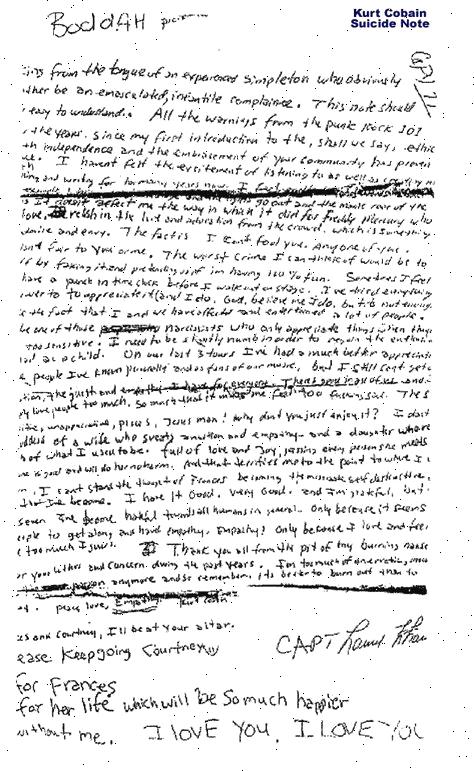 Kurt Cobain
Suicide Note
BoddAH
from the tongue of an experienced simpleton who obviously
be an emasculated, infantile complainee. This note should
easy to understand. All the warnings from the punk Rock 101
the years. since my first introduction to the, shall we say, ethic
independence and the embracement of your community has proven
I havent felt the excitement of listening to as well as creating
and writing for too many years now.
go out and the manic roar of the
doesnt affect me the way in which it did for Freddy Mercury who
love, relish in the love and adoration from the crowd. which is something
admire and envy. The fact is I cant fool you. Any one of you.
isnt fair to you or me. The worst crime I can think of would be to
by faking it and pretending as if im having 100% fun. Sometimes I feel
have a punch in time clock before I walk out on stage. I've tried everything
power to to appreciate it (and I do, God, believe me I do, but it's not enough
the fact that I and we have affected and entertained a lot of people.
be one of those narcisists who only appreciate things when they
too sensitive. I need to be slightly numb in order to regain the enthusiasm
as a child. On our last 3 tours I've had a much better appreciation
people I've known personally and as fans of our music, but I still cant get
the guilt and empathy I have for everyone. There's good in all of us and
love people too much. So much that it makes me feel too fucking sad. The
unappreciative, pisces, Jesus man! why dont you just enjoy it? I dont
of a wife who sweats ambition and empathy and a daughter who re
of what I used to be. full of love and joy, kissing every person she meets
is good and will do her no harm. And that terrifies me to the point to where I
I cant stand the thought of Frances becoming the miserable self destructive,
I've become. I have it Good. very Good. and I'm grateful, but
seven I've become hateful towards all humans in general. Only because it seems
people to get along and have empathy. Empathy! Only because I love and feel
too much I guess. Thank you all from the pit of my burning nause
your letters and concern during the past years. I'm too much of an erratic, moo
anymore and so remember, its better to burn out than to
peace, love, Empathy. Kurt Cobain
and Courtney, I'll be at your altar.
Keep going Courtney
for Frances
for her life which will be so much happier
without me. I LOVE YOU. I LOVE YOU